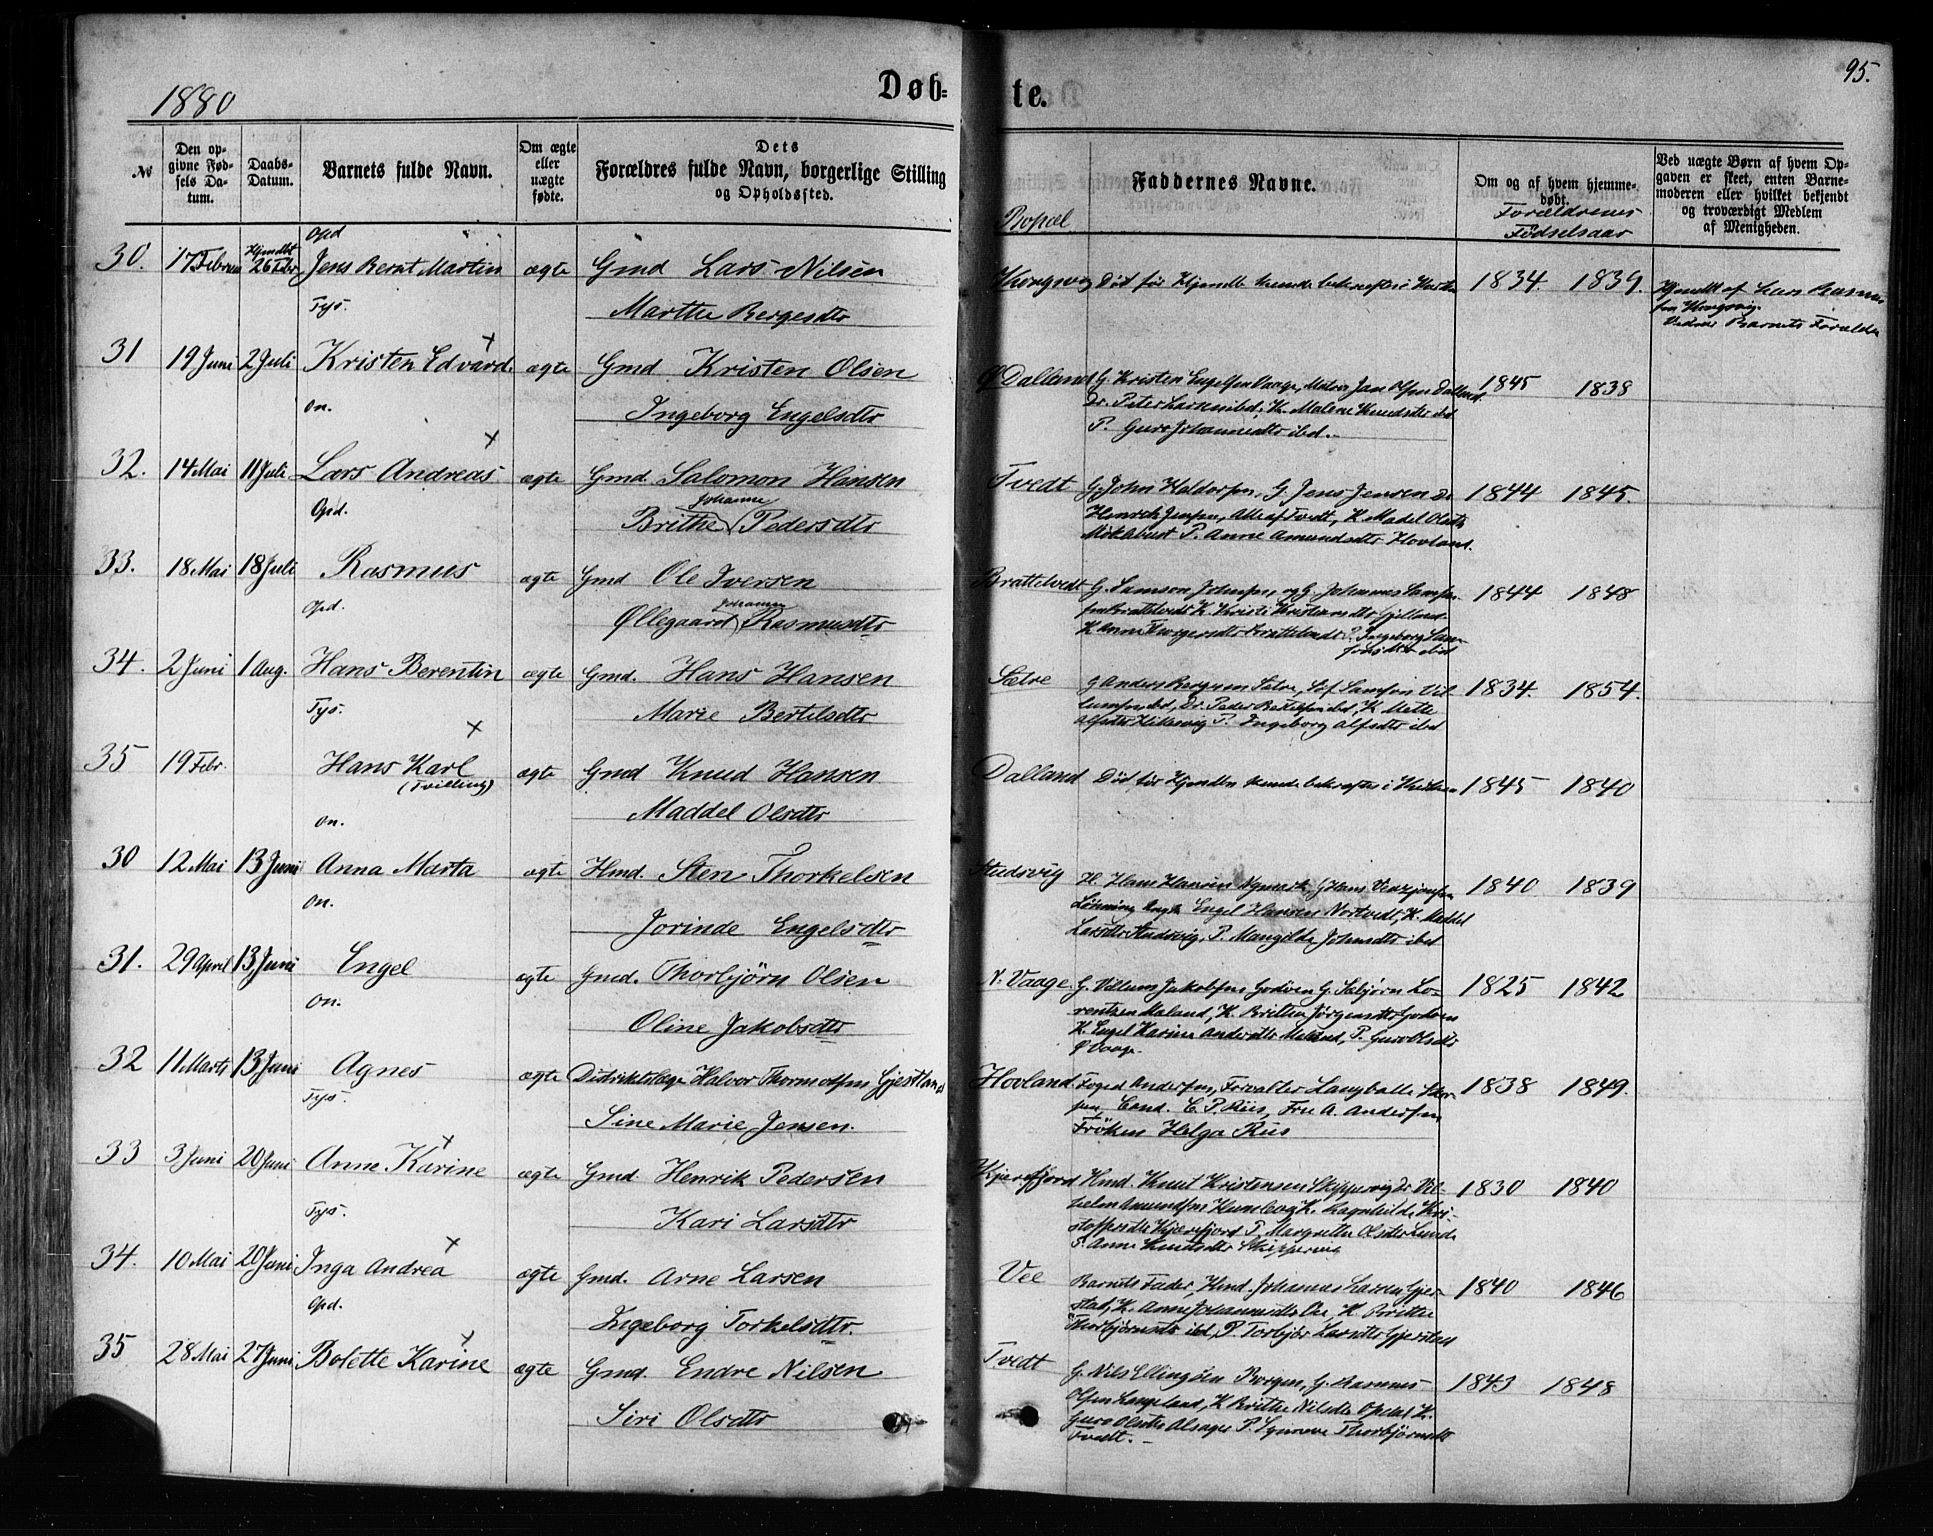 95.
1880
Døb-
te.
№
Den op-
givne Fød-
sels Da-
tum.
Daabs-
Datum.
Barnets fulde Navn.
Om ægte
eller
uægte
fødte.
Dets
Forældres fulde Navn, borgerlige Stilling
og Opholdssted.
Bopæl
Faddernes Navne.
Om og af hvem hjemme-
døbt.
Forældrenes
Fødselsaar
Ved uægte Børn af hvem Op-
gaven er skeet, enten Barne-
moderen eller hvilket bekjendt
og troværdigt Medlem
af Menigheden.
30. 17 Februar Hjmdbt 26 Febr Opd Jens Bernt Martin ægte Gmd Lars Nilsen
Tys. Marthe Bergesdtr
Kongsvig Død før Hjemdb kunde bekræftes i Kirken 1834. 1839. Hjmdbt af Lars
fra Kongsvig.
Vidner Barnets Forældre
31 19 Juni 2 Juli Kristen Edvard ægte Gmd Kristen Olsen
On. Ingeborg Engelsdtr
Ø Dalland G. Kristen Engelsen Vaage, Jan Olsen Dalland. 1845 1838
Dr. Peter Larsen ibd, K. Malene Knudsdtr ibd
P. Guro Johannesdtr ibd.
32. 14 Mai 11 Juli Lars Andreas ægte Gmd. Salomon Hansen
Opd. Brithe Johanne Pedersdtr
Tvedt G. John Haldorsen, G. Jens Jensen Dr 1844 1845.
Henrik Jensen, Alle af Tvedt, K. Madel Olsdtr
P. Anne Amundsdtr Hovland.
33. 18 Mai 18 Juli Rasmus ægte Gmd Ole Iversen
Opd. Øllegaard Johanne Rasmusdtr
Brattetvedt G. Samson Johnsen, og G. Johannes Sams- 1844 1848
sen Brattetvedt K. Kristi Kristensdtr
K. Anne Brattetvedt P. Ingeborg Sam-
sonsdtr ibd
34. 2 Juni 1 Aug. Hans Berentin ægte Gmd. Hans Hansen
Tys. Marie Bertilsdtr
Sætre G Anders Sætre, Samson Vil- 1834. 1854.
lumsen ibd, Dr. Peder Bertelsen ibd, K. Mette
Alfsdtr P. Ingeborg Alfsdtr ibd
35 19 Febr. Hans Karl ægte Gmd Knud Hansen
(Tvilling)
On. Maddel Olsdtr
Dalland Død før Hjemdbn kunde bekræftes i Kirken 1845 1840
30 12 Mai 13 Juni Anna Marta ægte Hmd. Sten Thorkelsen
On. Jorinde Engelsdtr
Studsvig H. Hans Hansen Nymark, G Hans 1840 1839
Engel Hansen Nortvedt, K. Maddel
Larsdtr Studsvig, P. Mangilde Johnsdtr ibd
31. 29 April 13 Juni Engel ægte Gmd. Thorbjørn Olsen
On. Oline Jakobsdtr
N. Vaage. G. Villum Jakobsen Godøen G. Sæbjørn Lo- 1825 1842
rentzen Møland, K. Brithe Jørgensdtr Godøen
K. Engel Karine Andersdtr P. Guro Olsdtr
Ø Vaage.
32 11 Marts 13 Juni Agnes ægte Distriktslæge Halvor Thormodsen Gjestland
Tys. Sine Marie Jensen.
Hovland Foged Andersen, Forvalter Langballe 1838 1849.
Cand. C. P. Riis, Fru A. Andersen,
Frøken Helga Riis
33 3 Juni 20 Juni Anne Karine ægte Gmd Henrik Pedersen
Tys. Kari Larsdtr
Kjærefjord Hmd. Knut Kristensen Skippervig Dr Vil- 1830 1840
helm Amundsen K. Ragnhilde Kri-
stoffersdtr Kjærefjord P. Margrethe Olsdtr Lunde
P. Anne Knutsdtr Skippervig
34. 10 Mai 20 Juni Inga Andrea ægte Gmd. Arne Larsen
Opd. Ingeborg Torkelsdtr.
Vee Barnets Fader, Hmd. Johannes Larsen Gjer- 1840 1846
stad, K. Anne Johannesdtr Vee K. Brithe
Thorbjørnsdtr ibd, P. Torbjør Larsdtr Gjerstad
35 28 Mai 27 Juni Bolette Karine ægte Gmd. Endre Nilsen
Siri Olsdtr
Tvedt G. Nils Ellingsen Borgen, G. Rasmus 1843 1848
Olsen Langeland, K Brithe Nilsdtr Opdal K.
Guro Olsdtr Alsager P. Synneve Thorbjørnsdtr
Tvedt.